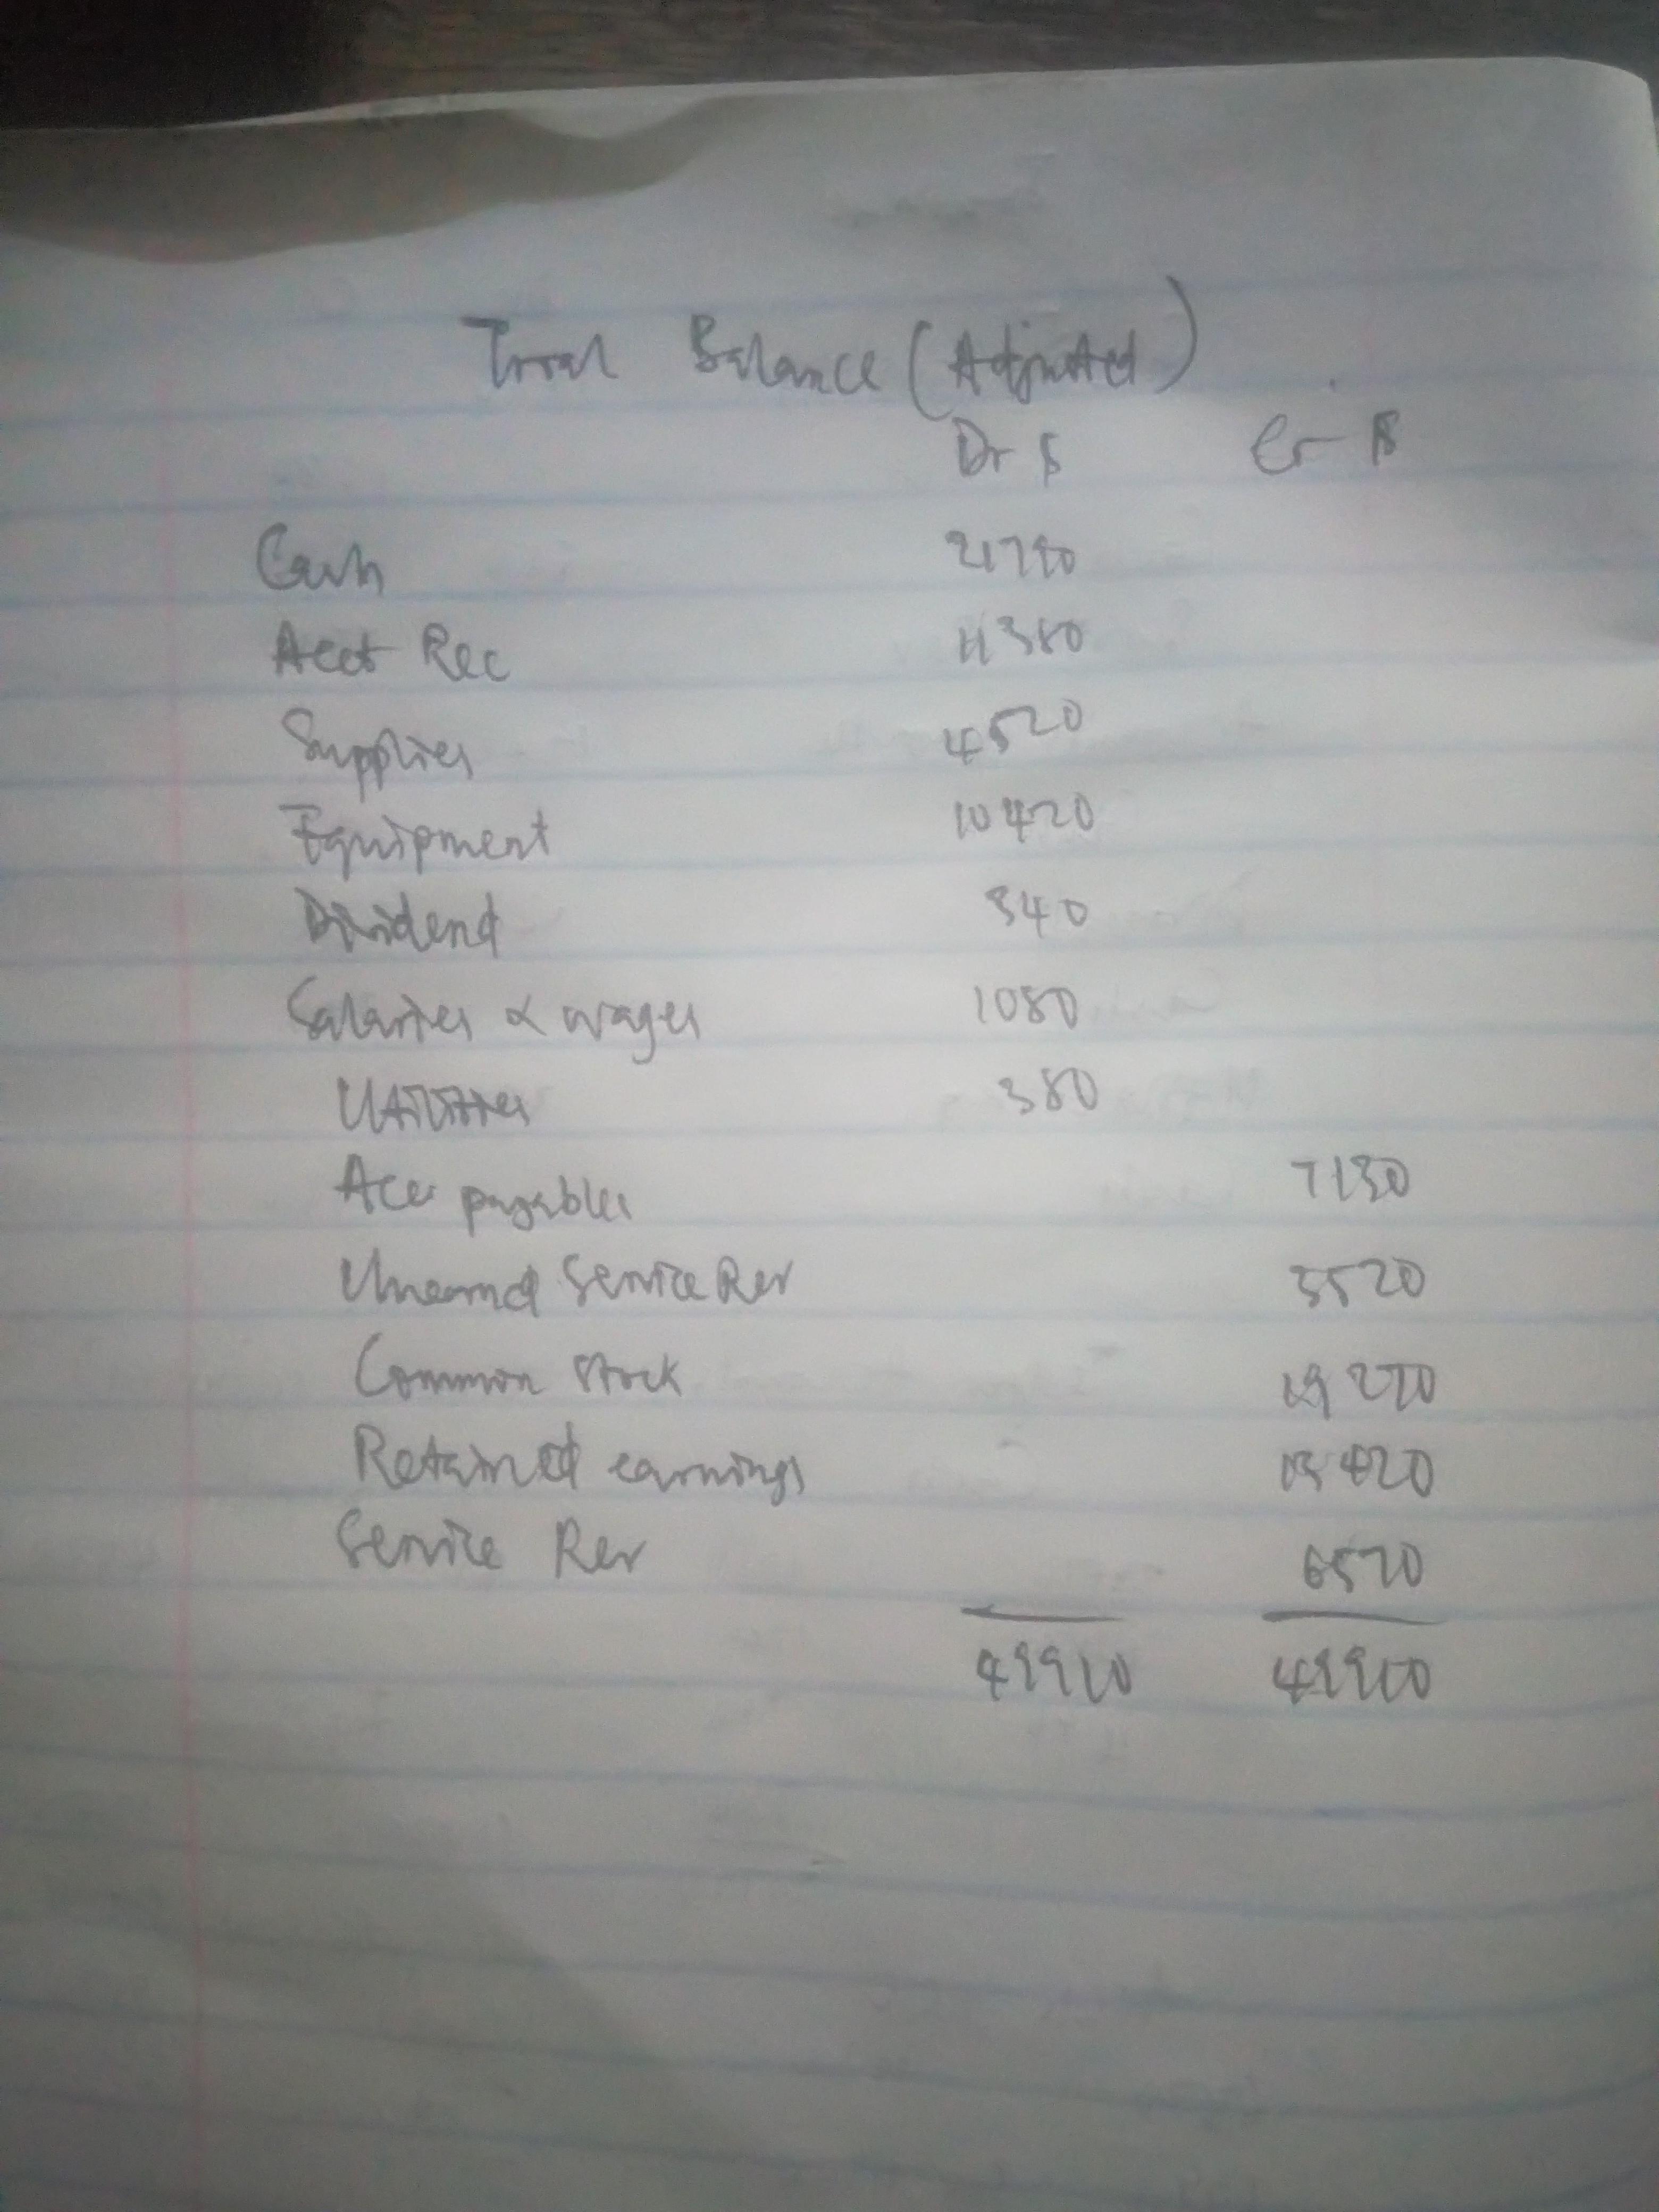 Trial Balance (Adjusted)
Dr $ Cr $
Cash 21790
Acct Rec 11380
Supplies 4520
Equipment 10420
Dividend 340
Salaries & wages 1080
Utilities 380
Acc payables 7130
Unearned Service Rev 3520
Common Stock 19270
Retained earnings 13420
Service Rev 6570
49910 49910